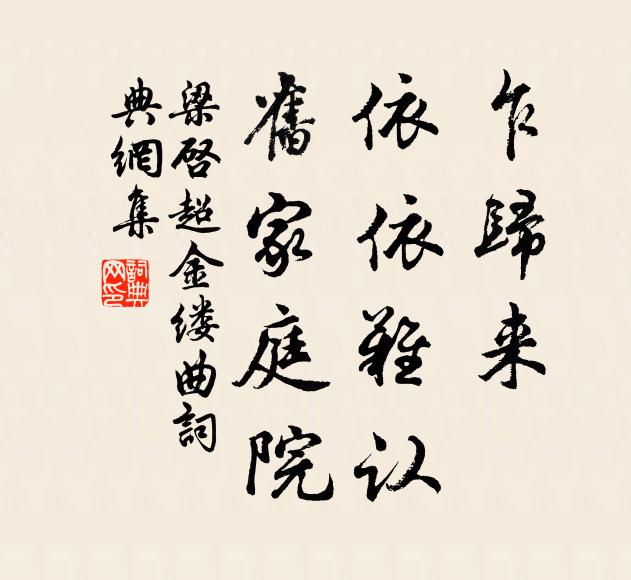 乍歸来
依依難认
舊家庭院
梁启超金缕曲詞
典網集
詞典网印